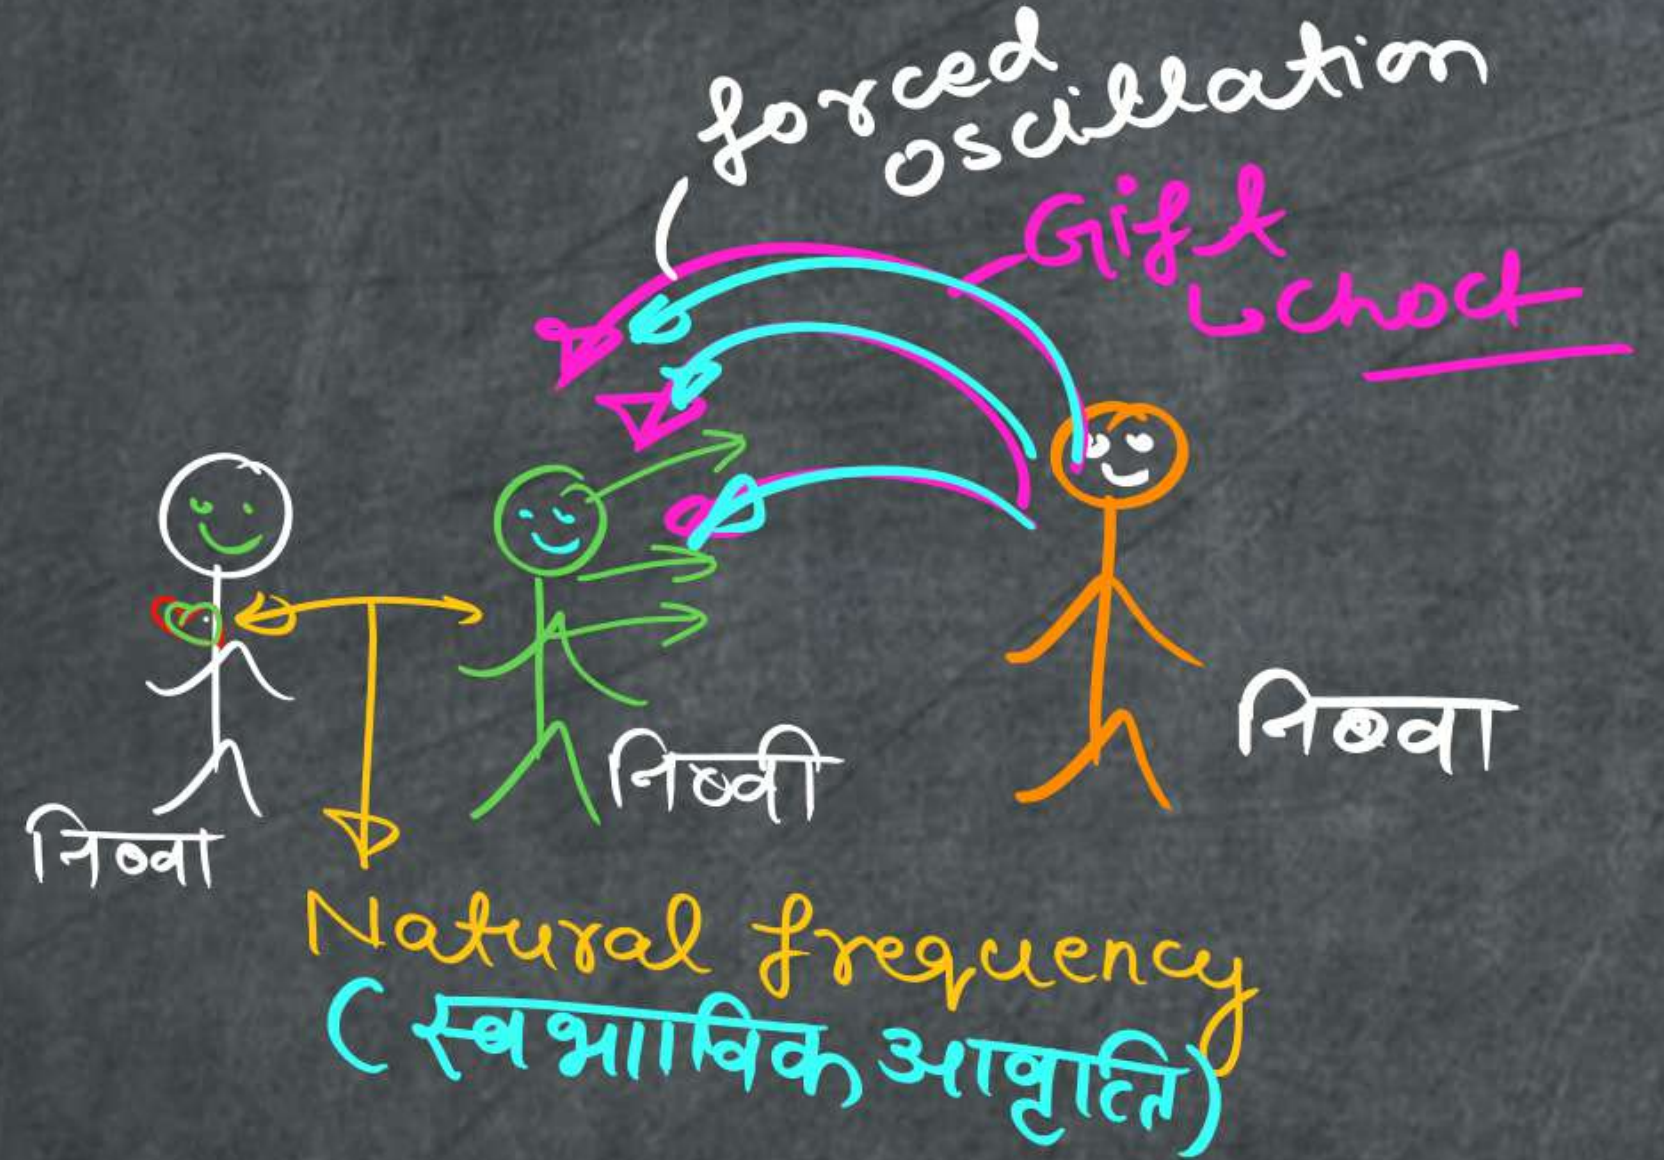 forced
oscillation
Gift
↳ choct
निब्बा
निब्बी
निब्बा
Natural frequency
(स्वभाविक आवृत्ति)